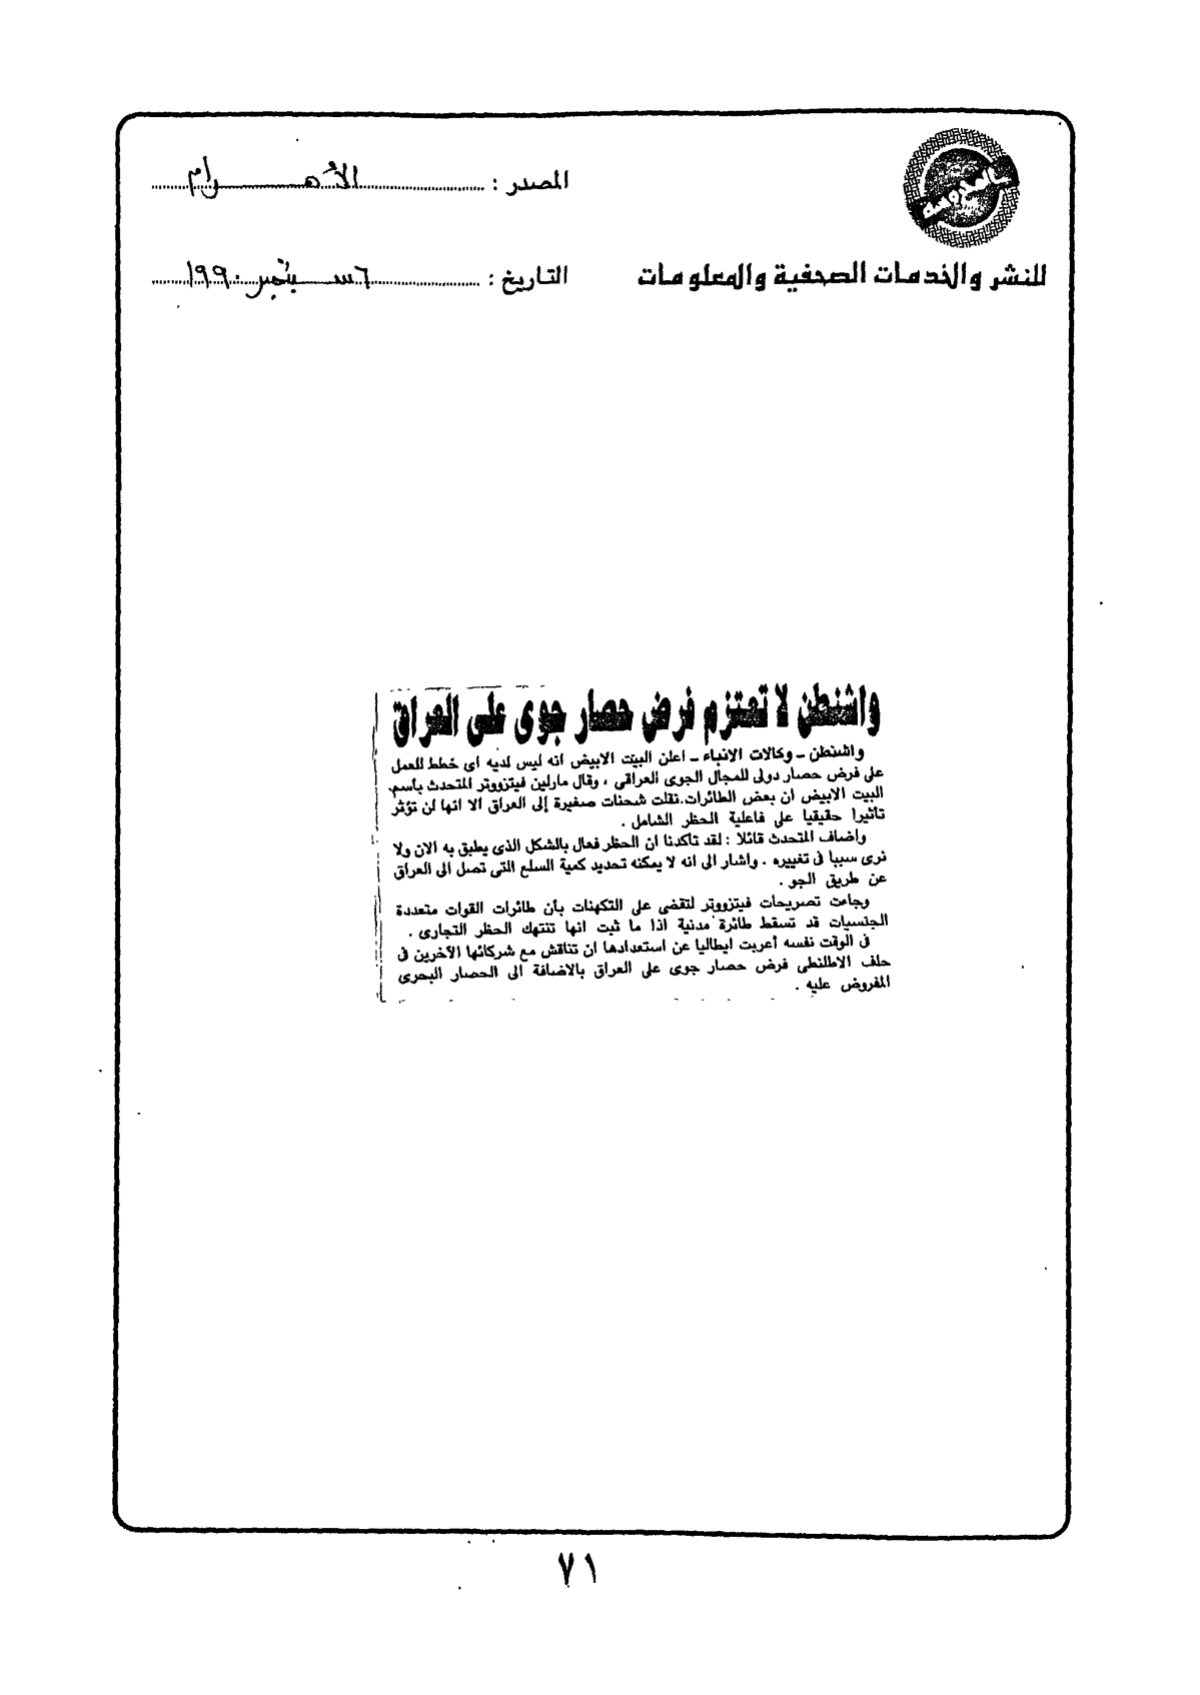 المصدر : الأهرام
للنشر والخدمات الصحفية والمعلومات
التاريخ : ٦ سبتمبر ١٩٩٠
واشنطن لا تعتزم فرض حصار جوى على العراق
واشنطن ـ وكالات الانباء ـ اعلن البيت الابيض انه ليس لديه اى خطط للعمل
على فرض حصار دولى للمجال الجوى العراقى ، وقال مارلين فيتزووتر المتحدث بأسم
البيت الابيض ان بعض الطائرات نقلت شحنات صغيرة إلى العراق الا انها لن تؤثر
تاثيرا حقيقيا على فاعلية الحظر الشامل .
واضاف المتحدث قائلا : لقد تاكدنا ان الحظر فعال بالشكل الذى يطبق به الان ولا
نرى سببا فى تغييره . واشار الى انه لا يمكنه تحديد كمية السلع التى تصل الى العراق
عن طريق الجو .
وجاءت تصريحات فيتزووتر لتقضى على التكهنات بأن طائرات القوات متعددة
الجنسيات قد تسقط طائرة مدنية اذا ما ثبت انها تنتهك الحظر التجارى .
فى الوقت نفسه أعربت ايطاليا عن استعدادها ان تناقش مع شركائها الآخرين فى
حلف الاطلنطى فرض حصار جوى على العراق بالاضافة الى الحصار البحرى
المفروض عليه .
٧١